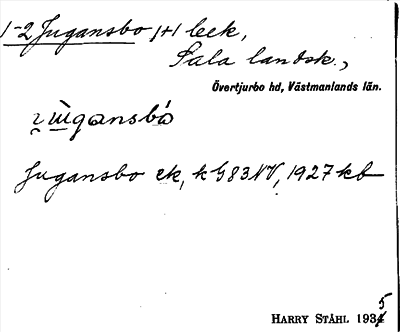 1-2 Jugansbo 1+1 bek,
Sala landsk.,
Övertjurbo hd, Västmanlands län.
Jugansbo ek, k G83NV, 1927 kb
HARRY STÅHL 1935